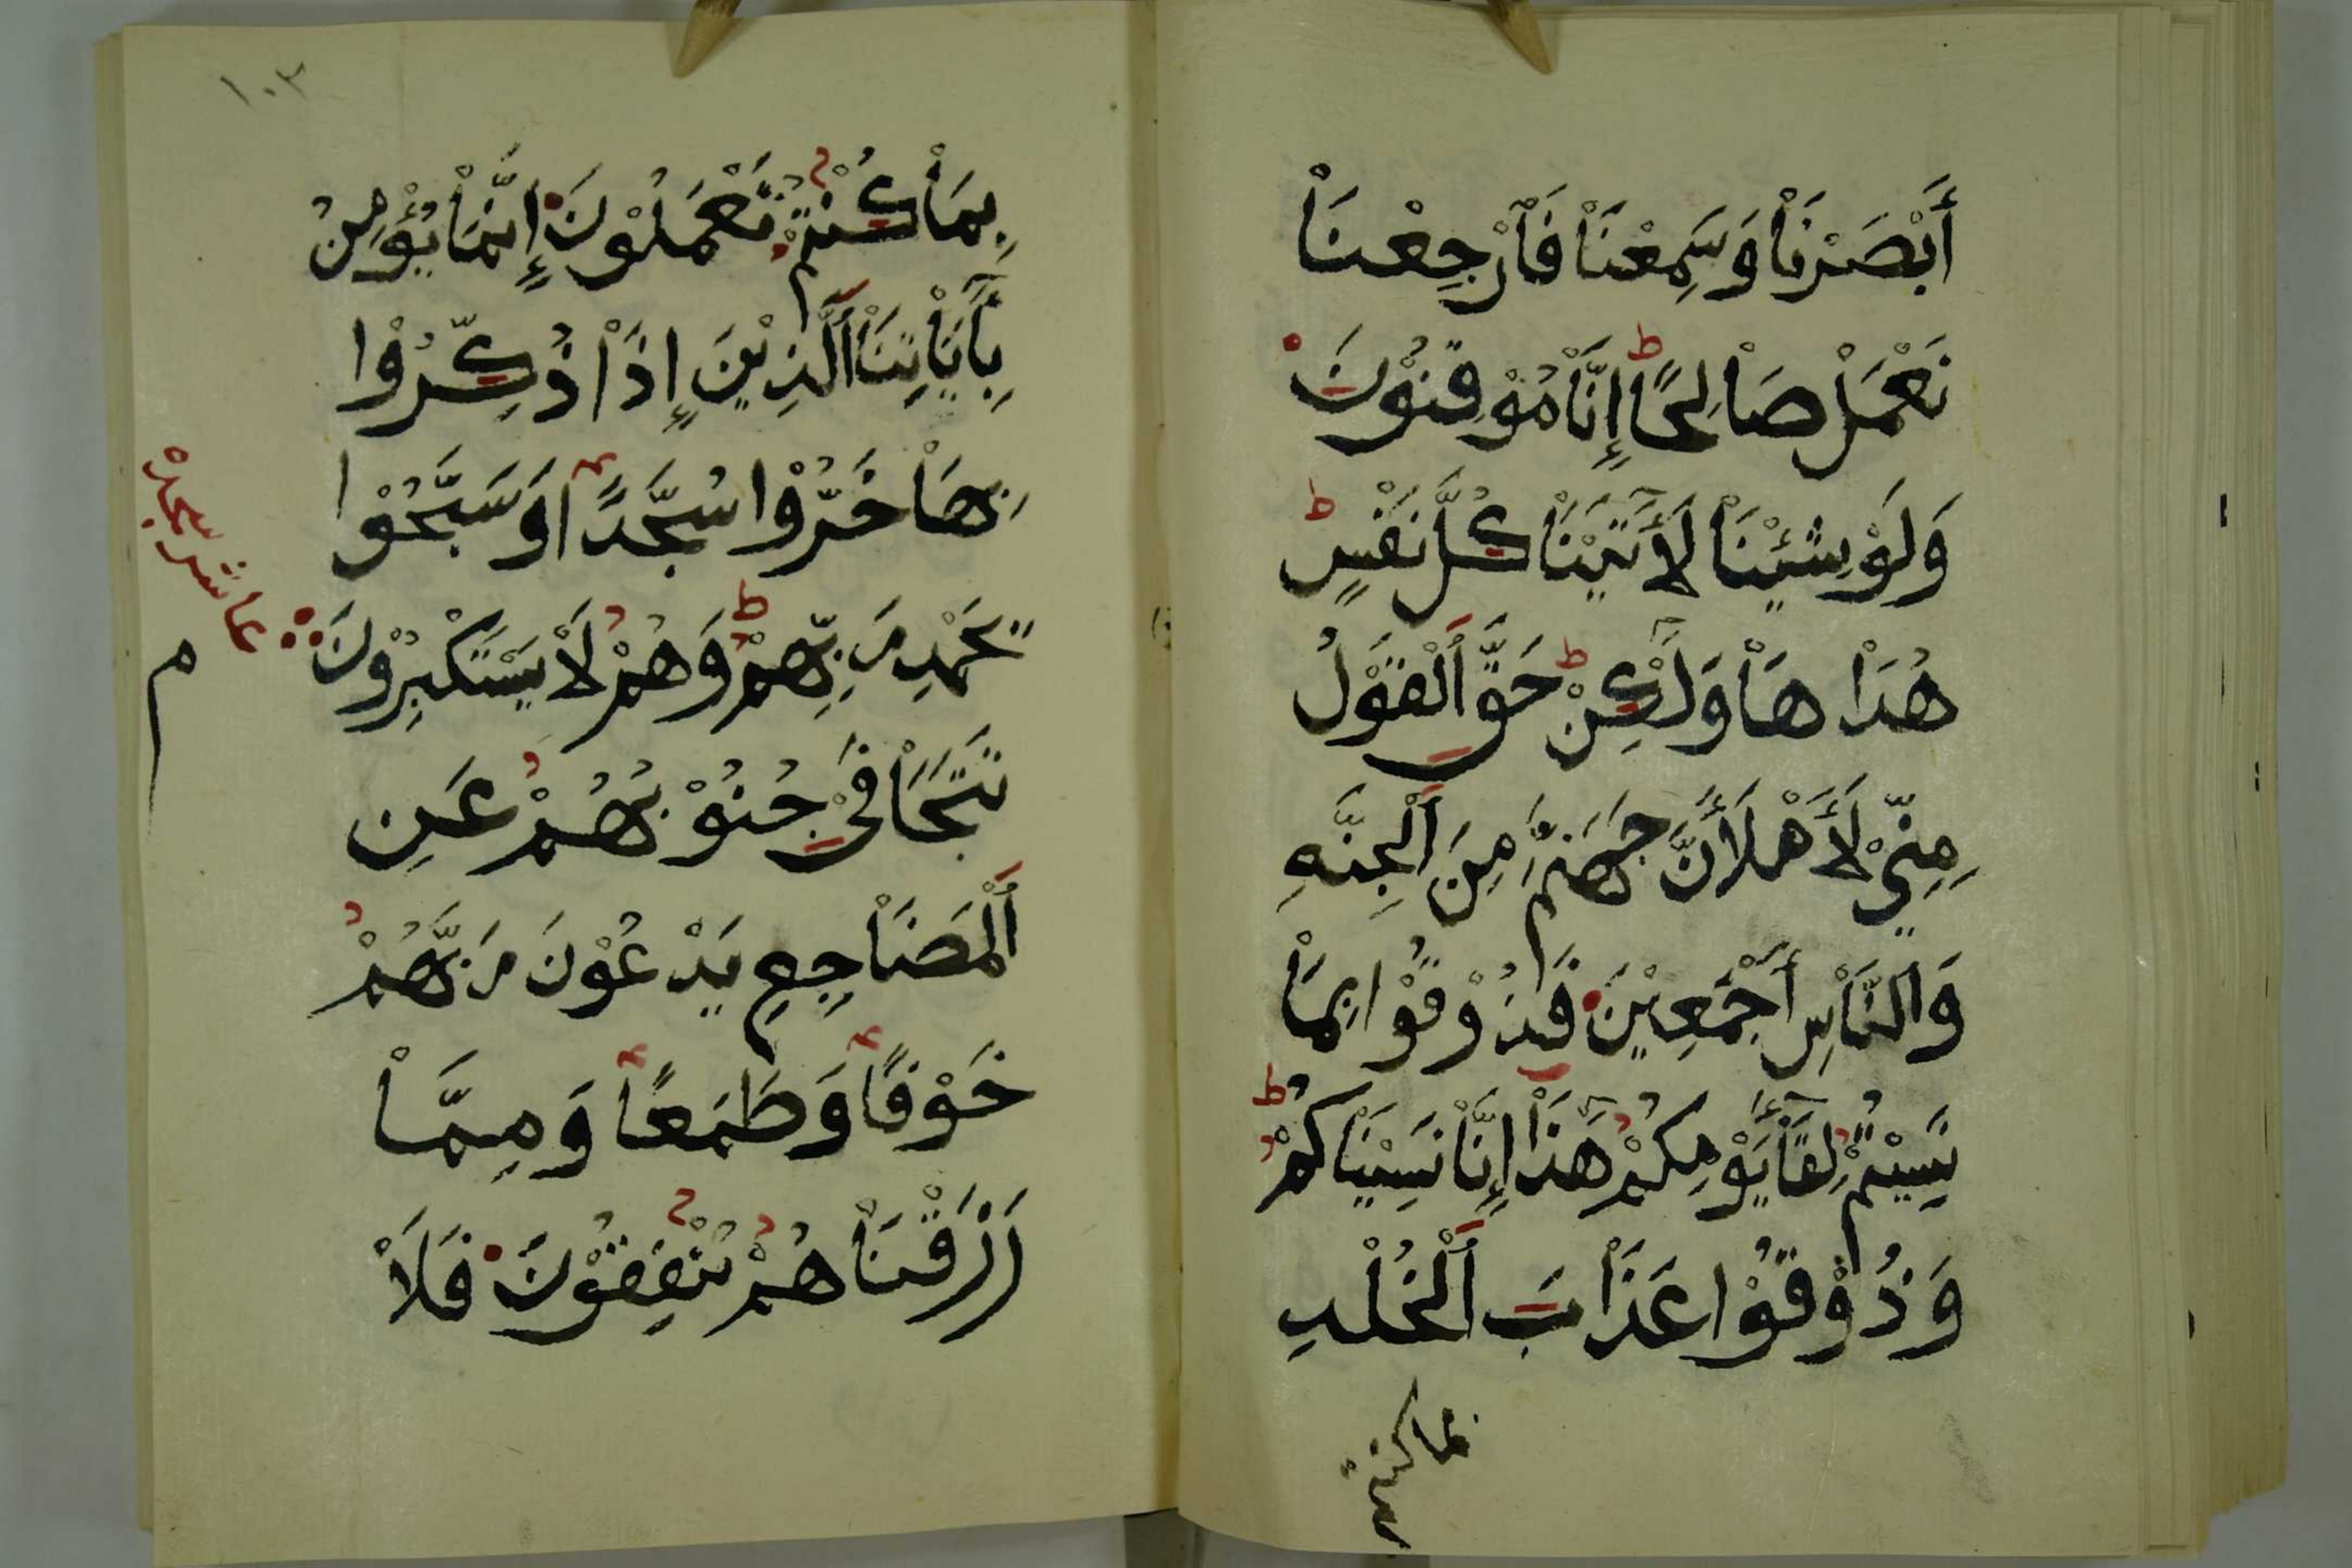 أَبْصَرْنَاْ وَسَمِعْنَاْ فَاَرْجِعْنَاْ
نَعْمَلْ صَاْلِحًا ط إِنَّاْ مُوْقِنُوْنَ
وَلَوْ شِئْنَاْ لَأٓتَيْنَاْ كُلَّ نَفْسٍ ط
هُدَاْهَاْ وَلَٰكِنْ ط حَقَّ اَلْقَوْلُ
مِنِّيْ لَأَمْلَأَنَّ جَهَنَّمَ مِنَ اَلْجِنَّةِ
وَالنَّاْسِ أَجْمَعِيْنَ فَذُوْقُوْا بِمَاْ
نَسِيْتُمْ لِقَآءَ يَوْمِكُمْ هَٰذَاْ إِنَّاْ نَسِيْنَاْكُمْ ط
وَذُوْقُوْا عَذَاْبَ اَلْخُلْدِ
بما كنتم
١٠٣
بِمَاْ كُنْتُمْ تَعْمَلُوْنَ إِنَّمَاْ يُؤْمِنُ
بِأٓيَاْتِنَاْ اَلَّذِيْنَ إِذَاْ ذُكِّرُوْا
بِهَاْ خَرُّوْا سُجَّدًا وَسَبَّحُوْا
بِحَمْدِ رَبِّهِمْ ط وَهُمْ لَاْ يَسْتَكْبِرُوْنَ
عاشر سجده
م
تَتَجَاْفَىْ جُنُوْبُهُمْ عَنِ
اَلْمَضَاْجِعِ يَدْعُوْنَ رَبَّهُمْ
خَوْفًا وَطَمَعًا وَمِمَّاْ
رَزَقْنَاْهُمْ يُنْفِقُوْنَ فَلَاْ